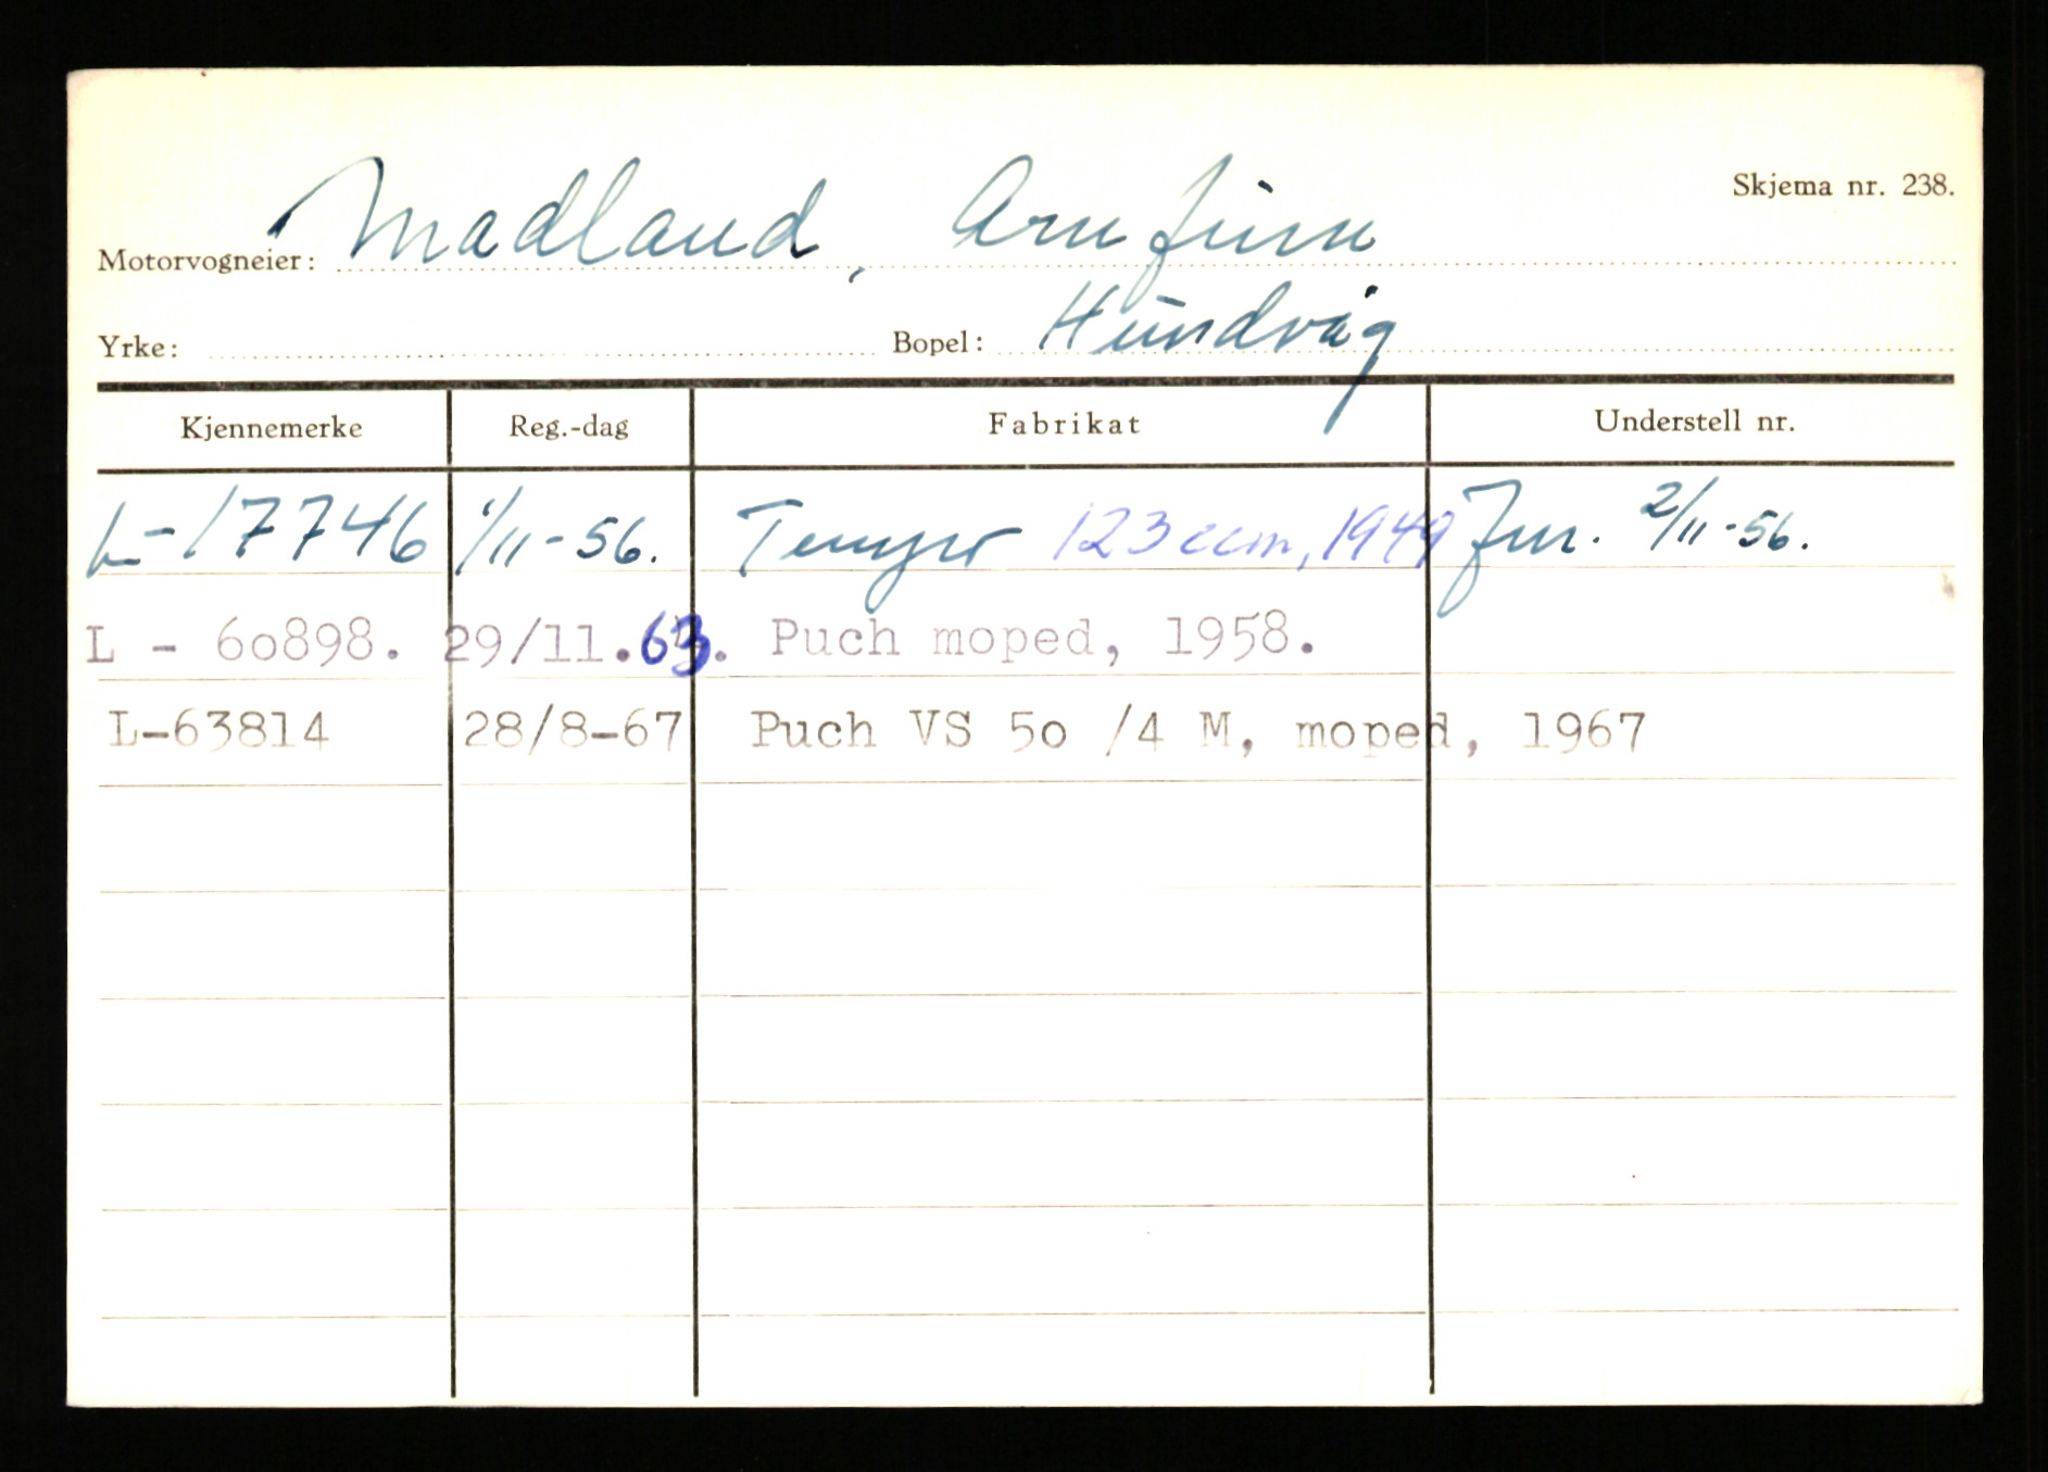 Skjema nr. 238.
Motorvogneier: Madland, Arnfinn
Yrke: Bopel: Hundvåg
Kjennemerke Reg.-dag Fabrikat Understell nr.
L-17746 1/11-56. Tempo 123 ccm, 1949 Fnr. 2/11-56.
L - 60898. 29/11.63. Puch moped, 1958.
L-63814 28/8-67 Puch VS 50 /4 M, moped, 1967